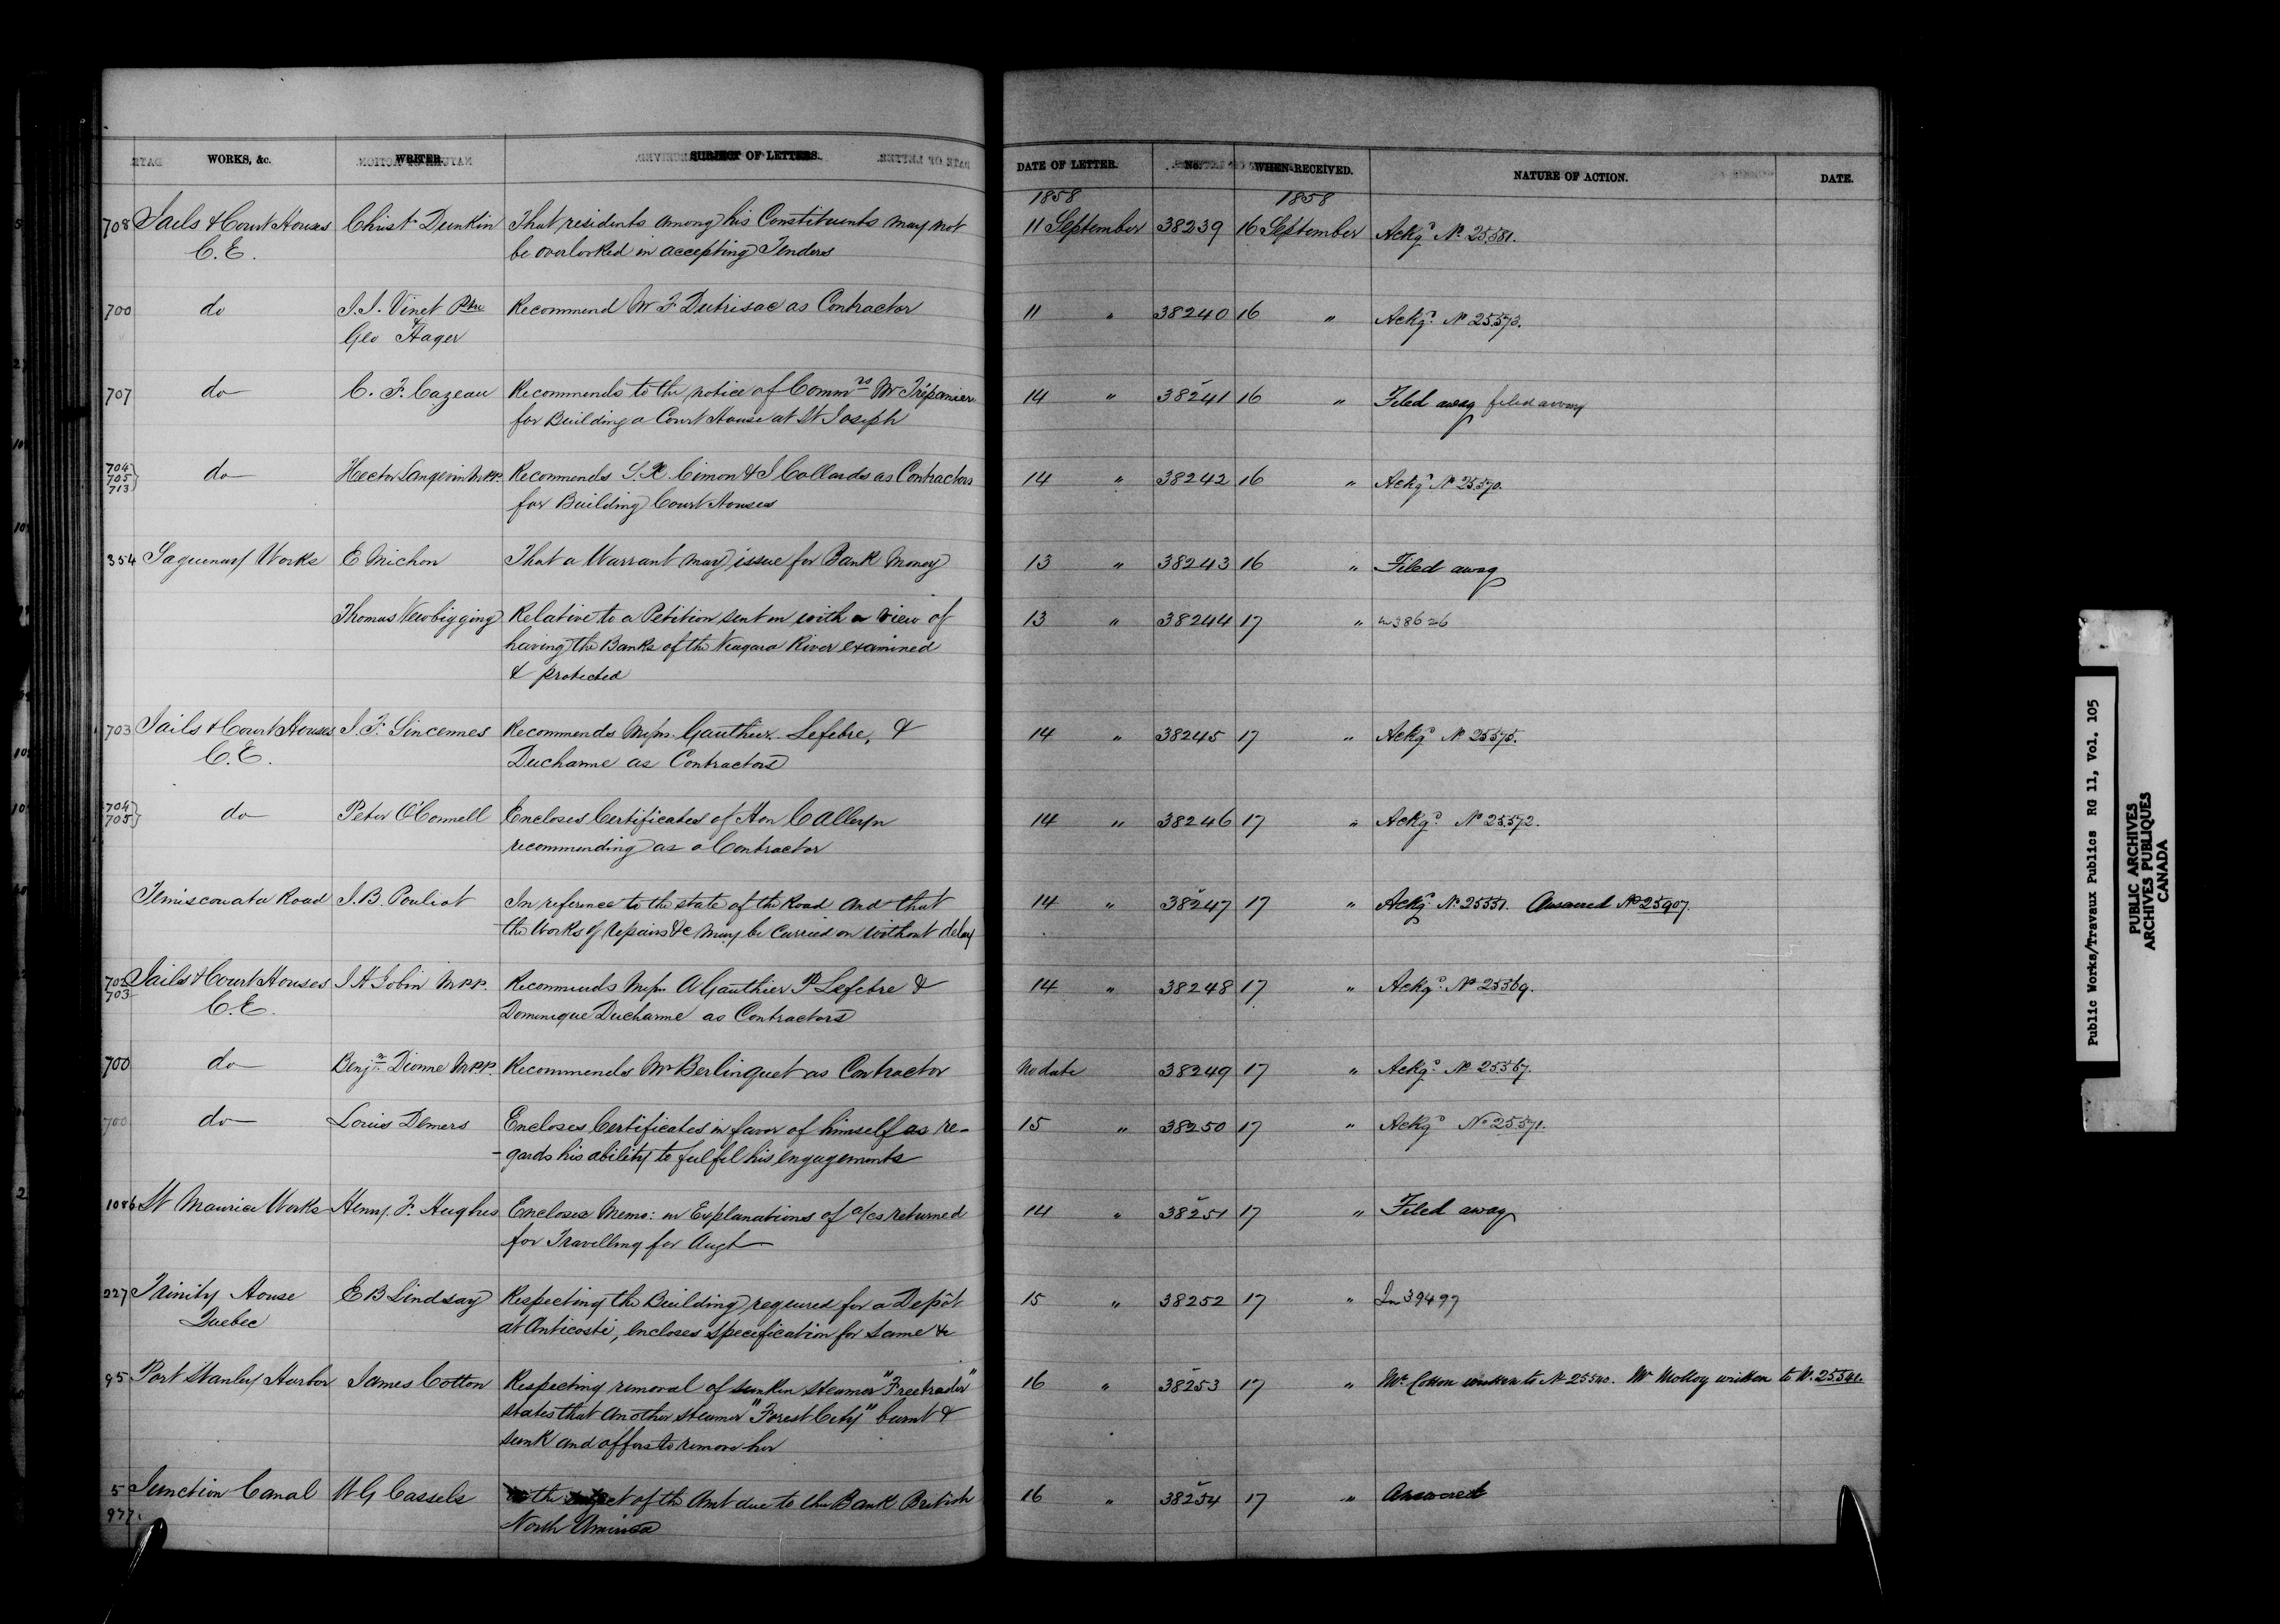 WORKS, &c. WRITER. SUBJECT OF LETTERS. DATE OF LETTER. No. WHEN RECEIVED. NATURE OF ACTION. DATE.
1858 1858
708 Jails & Court Houses Christr Dunkin That residents among his Constituents may not 11 September 38239 16 September Ackgd No 25581.
C.E. be overlooked in accepting Tenders
700 do J.J. Vinet Ptre Recommend Mr F Dutrisac as Contractor 11 " 38240 16 " Ackgd No 25573.
& Geo Hager
707 do C. F. Cazeau Recommends to the notice of Commrs Mr Trépanier 14 " 38241 16 " Filed away filed away
for Building a Court House at St Joseph
704 705 713 do Hector Langevin M.P.P. Recommends S. X. Cimon & J Collards as Contractors 14 " 38242 16 " Ackgd No 25570.
for Building Court Houses
354 Saguenay Works E Michon That a Warrant may issue for Bank Money 13 " 38243 16 " Filed away
Thomas Newbigging Relative to a Petition sent in with a view of 13 " 38244 17 " in 38626
having the Banks of the Niagara River examined
& protected
703 Jails & Court Houses J. F. Sincennes Recommends Messrs. Gauthier Lefebre, & 14 " 38245 17 " Ackgd No 25575.
C.E. Ducharme as Contractors
704 705 do Peter O'Connell Encloses Certificates of Hon C Alleyn 14 " 38246 17 " Ackgd No 25572.
recommending as a Contractor
Temiscouata Road J.B. Pouliot In reference to the state of the Road and that 14 " 38247 17 " Ackgd No 25551. Answered No 25907.
the Works of repairs &c may be carried on without delay
702 703 Jails & Court Houses J H Jobin M.P.P. Recommends Messrs A Gauthier P Lefebre & 14 " 38248 17 " Ackgd No 25569.
C.E. Dominique Ducharme as Contractors
700 do Benjn Dionne M.P.P. Recommends Mr Berlinquet as Contractor No date 38249 17 " Ackgd No 25567.
700 do Louis Demers Encloses Certificates in favor of himself as re- 15 " 38250 17 " Ackgd No 25571.
-gards his ability to fulfel his engagements
1086 St Maurice Works Henry. F. Hughes Encloses Memo: in Explanations of a/cs returned 14 " 38251 17 " Filed away
for Travelling for Augt
227 Trinity House E B Lindsay Respecting the Building required for a Depôt 15 " 38252 17 " In 39497
Quebec at Anticosti, encloses specification for same &c
95 Port Stanley Harbor James Cotton Respecting removal of sunken steamer "Freetrader" 16 " 38253 17 " Mr. Cotton written to No 25540. Mr Molloy written to No. 25541.
states that another steamer "Forest City" burnt &
sunk and offers to remove her
5 Junction Canal W G Cassels the of the Amt due to the Bank British 16 " 38254 17 " Answered
977. North America
Public Works/Travaux Publics RG 11, Vol. 105
PUBLIC ARCHIVES
ARCHIVES PUBLIQUES
CANADA